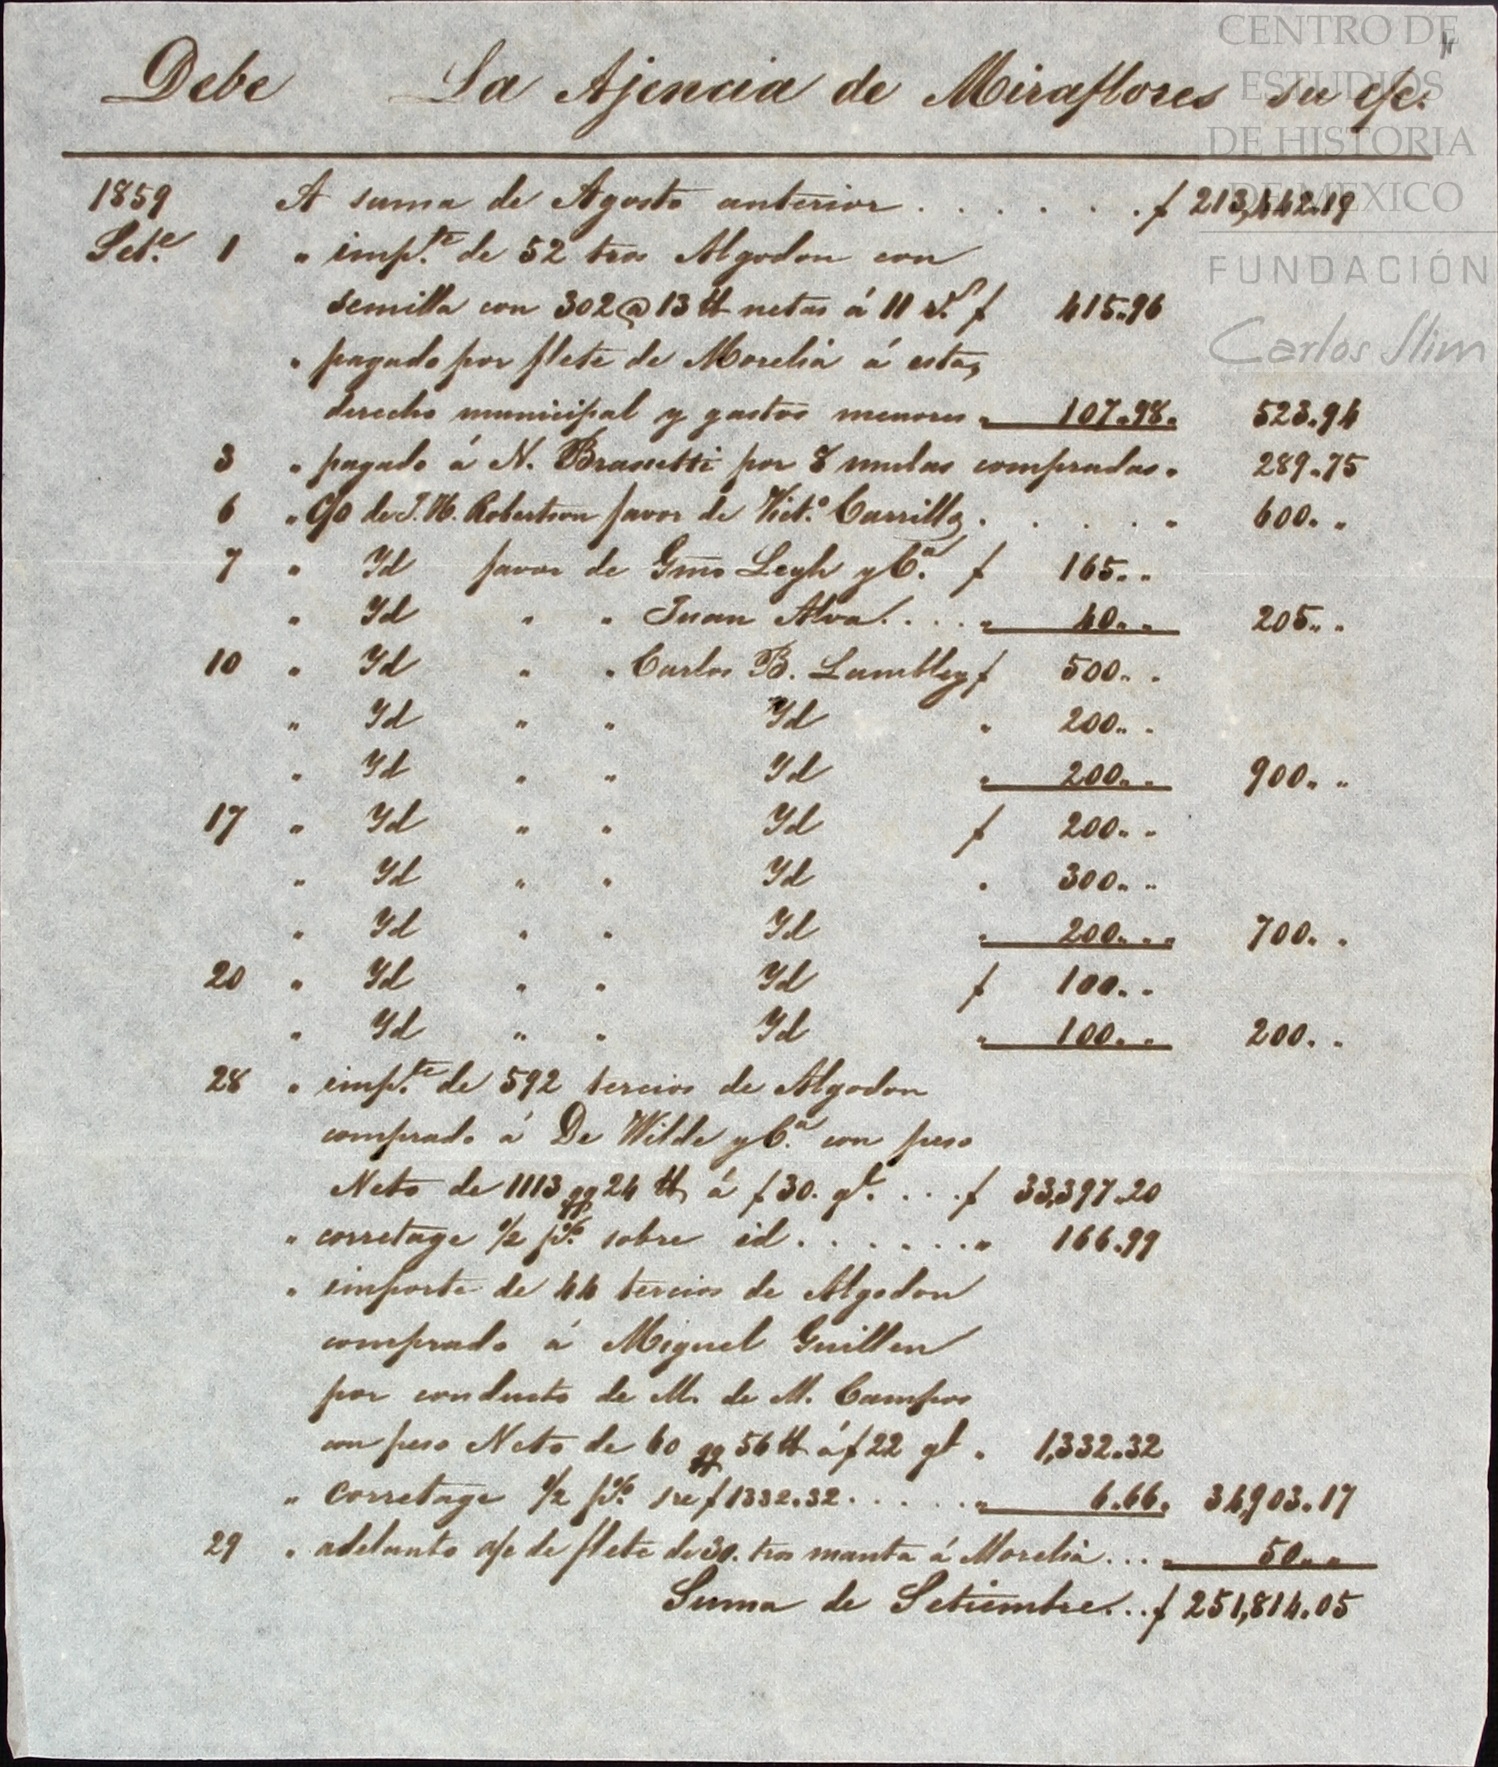 CENTRO DE
ESTUDIOS
DE HISTORIA
DE MEXICO
FUNDACIÓN
Carlos Slim
Debe La Ajencia de Miraflores su c/c.
1859 A suma de Agosto anterior . . . . . . . $ 213,442.19
Set.e 1 " imp.te de 52 tros Algodon con
semilla con 302 @ 13 tt netas á 11 rs. $ 415.96
" pagado por flete de Morelia á esta,
derecho municipal y gastos menores " 107.98. 523.94
3 " pagado á N. Brassetti por 8 mulas compradas " 289.75
6 " C/o de J. H. Robertson favor de Vict.o Carrillo . . . . . " 600. "
7 " Yd favor de Gmo Legh y C.a $ 165. "
" Yd " " Juan Alva . . . . " 40. " 205. "
10 " Yd " " Carlos B. Lumbley $ 500. "
" Yd " " Yd " 200. "
" Yd " " Yd " 200. " 900. "
17 " Yd " " Yd $ 200. "
" Yd " " Yd " 300. "
" Yd " " Yd " 200. " 700. "
20 " Yd " " Yd $ 100. "
" Yd " " Yd " 100. " 200. "
28 " imp.te de 592 tercios de Algodon
comprado á De Wilde y C.a con peso
Neto de 1113 qq 24 tt, á $ 30. ql. . . . $ 33,397.20
" corretage 1/2 p% sobre id . . . . . . . " 166.99
" importe de 44 tercios de Algodon
comprado á Miguel Guillen
por conducto de M. de M. Campos
con peso Neto de 60 qq 56 tt á $ 22 ql " 1,332.32
" corretage 1/2 p% sre $ 1332.32 . . . . . " 6.66. 34,903.17
29 " adelanto a/c de flete de 30. tros manta á Morelia . . . " 50. "
Suma de Setiembre . . . $ 251,814.05